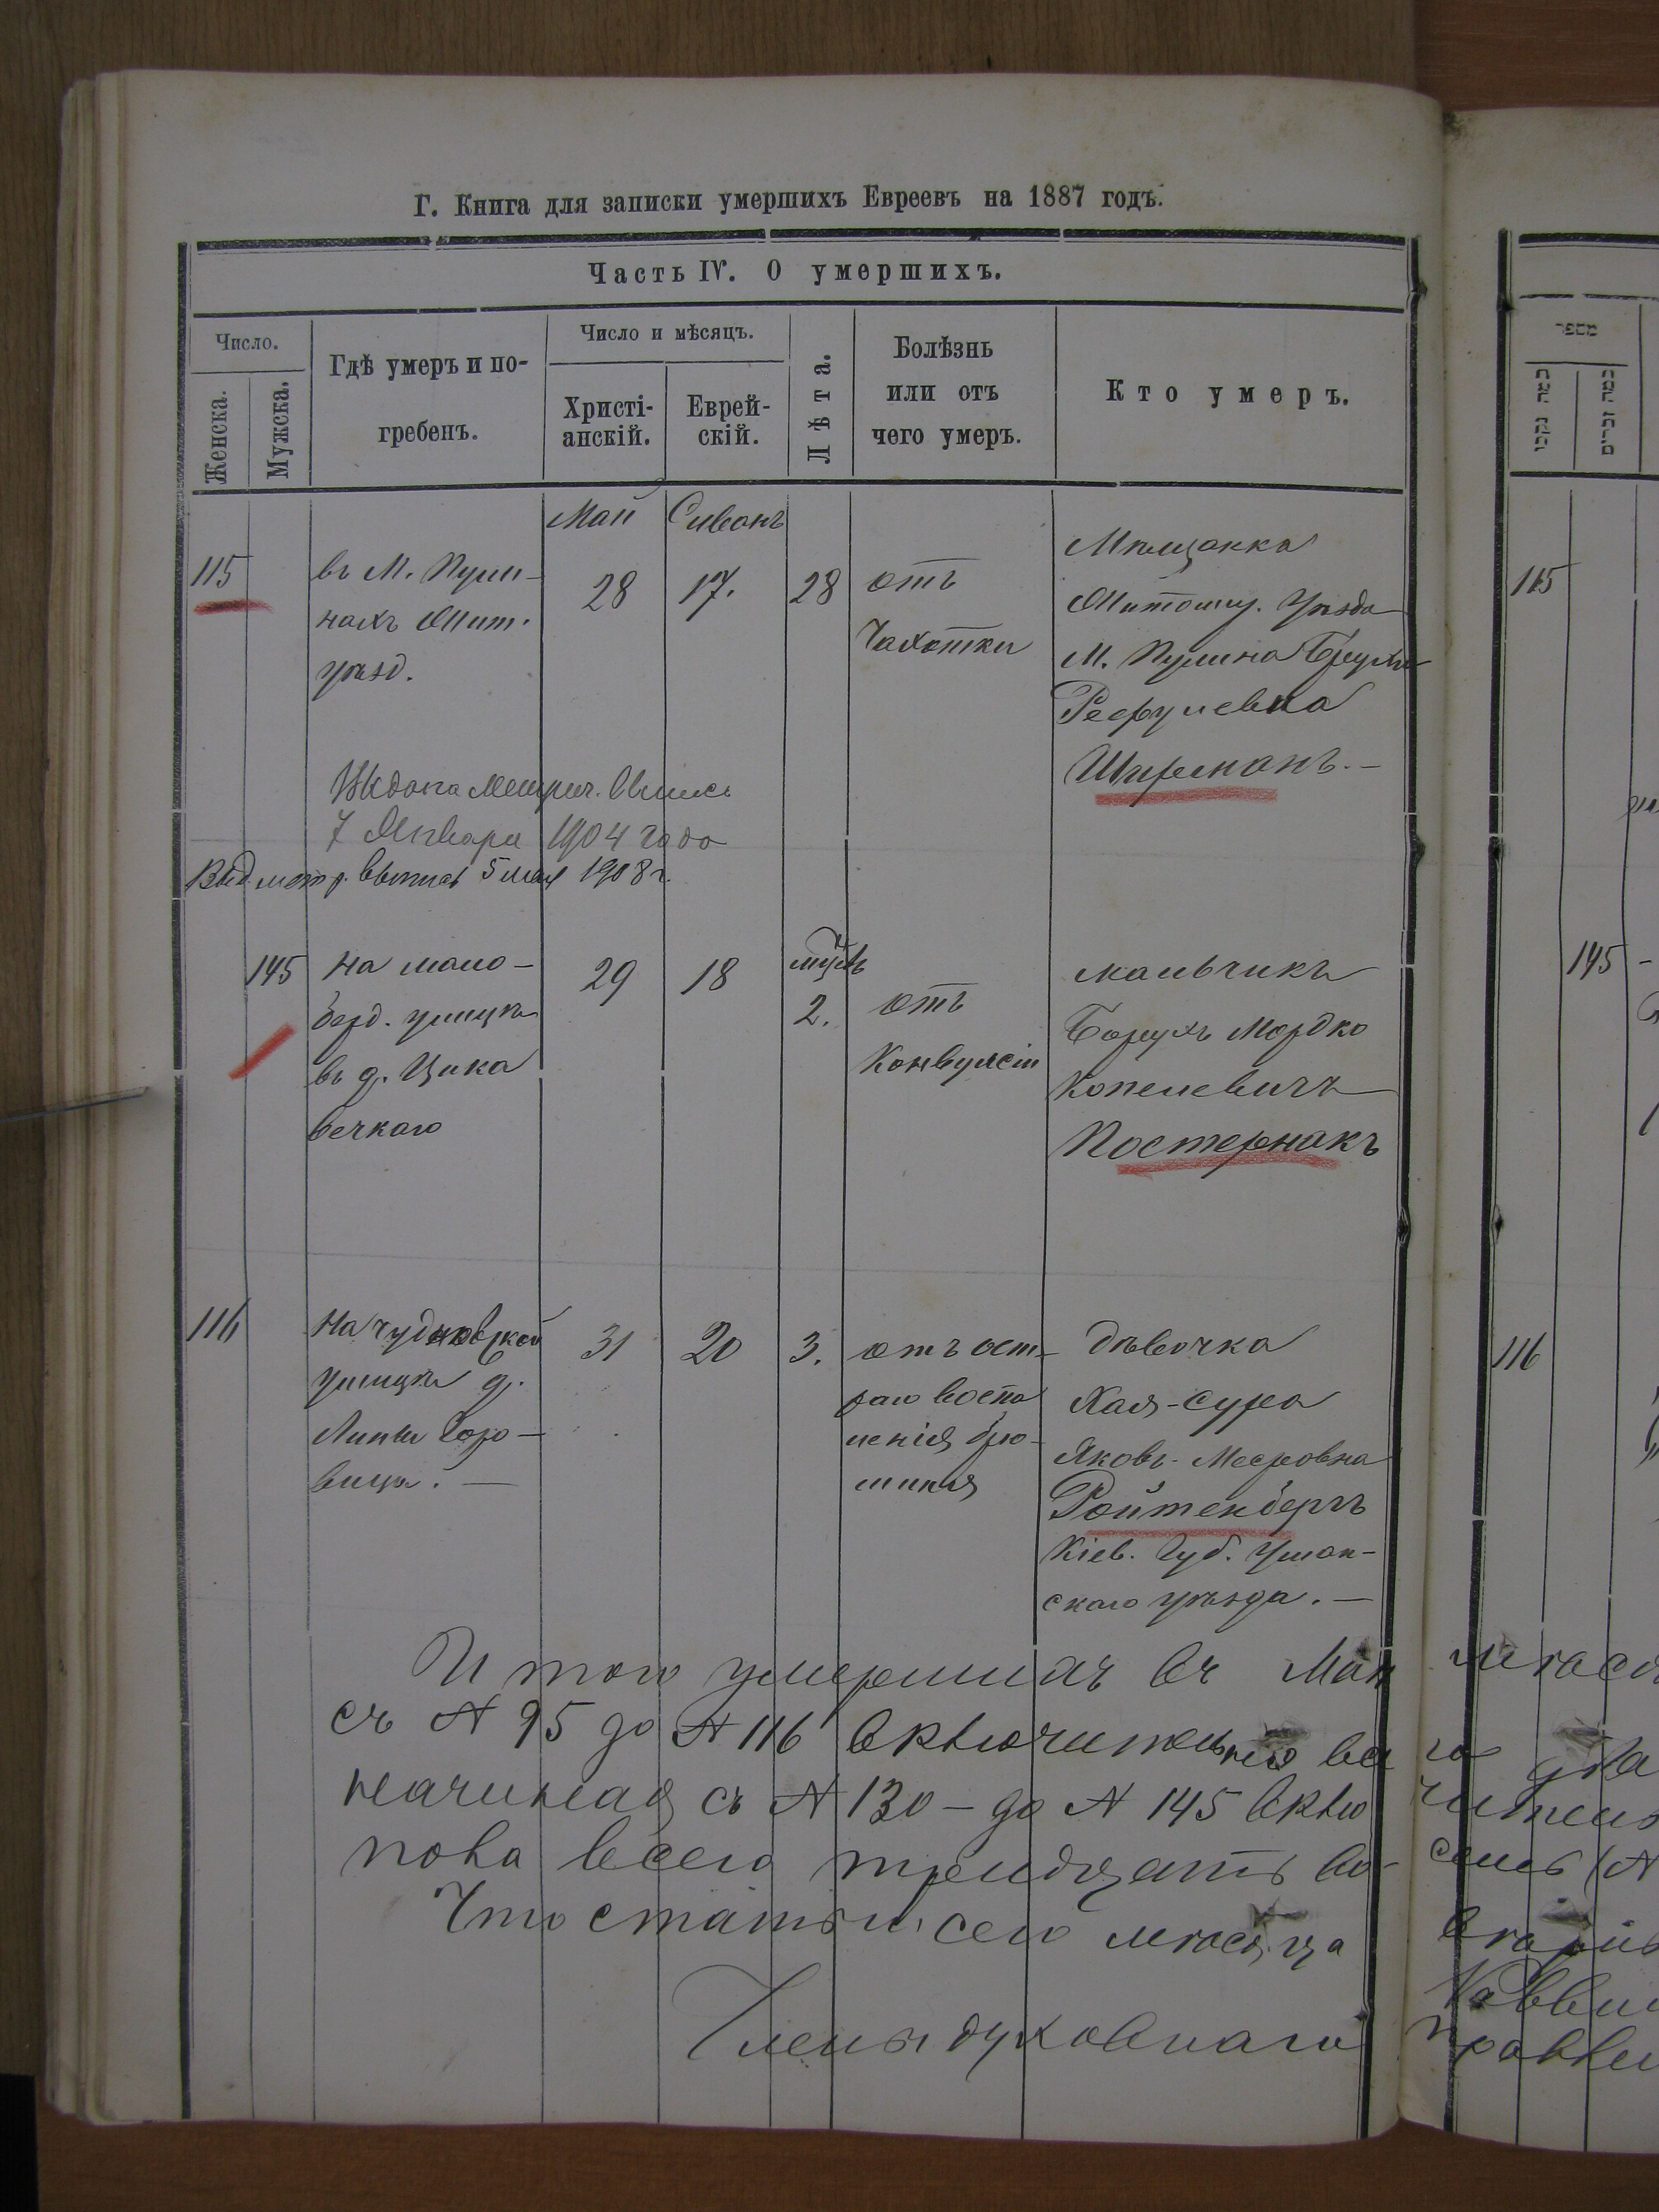 Г. Книга для записки умершихъ Евреевъ на 1887 годъ.
Часть IV. О умершихъ.
Число.
Женска.
Мужска.
Гдѣ умеръ и по-
гребенъ.
Число и мѣсяцъ.
Христі-
анскій.
Еврей-
скій.
Лѣта.
Болѣзнь
или отъ
чего умеръ.
Кто умеръ.
מספר
כמה נקבו
כמה זכרים
Май
Сиванъ
115
въ М. Пули-
нахъ Жит.
уѣзд.
28
17.
28
отъ
Чахотки
Мѣщанка
Житомир. Уѣзда
М. Пулина
Рефулевна
Ширманъ.-
115
Метрич.
7 Января 1904 года
Выд метр. выпись 5 мая 1908 г.
145
на мало-
берд. улицѣ
въ д.
29
18
2.
отъ
Конвулсіи
мальчикъ
Борухъ Мордко
Копелевичъ
Постернакъ
145 -
116
На чудновской
улицѣ д.
31
20
3.
отъ ост-
раго воспа
ленія брю-
шины
дѣвочка
Хая-Сура
Яковъ-Мееровна
Ройтенбергъ
Кіев. Губ. Уман-
скаго уѣзда. -
116
И того умершихъ въ Маѣ
съ № 95 до № 116 включительно
начиная съ № 130 - до № 145 вклю
пола всего тридцать во-
Что статьи сего мѣсяца
Члены духовнаго